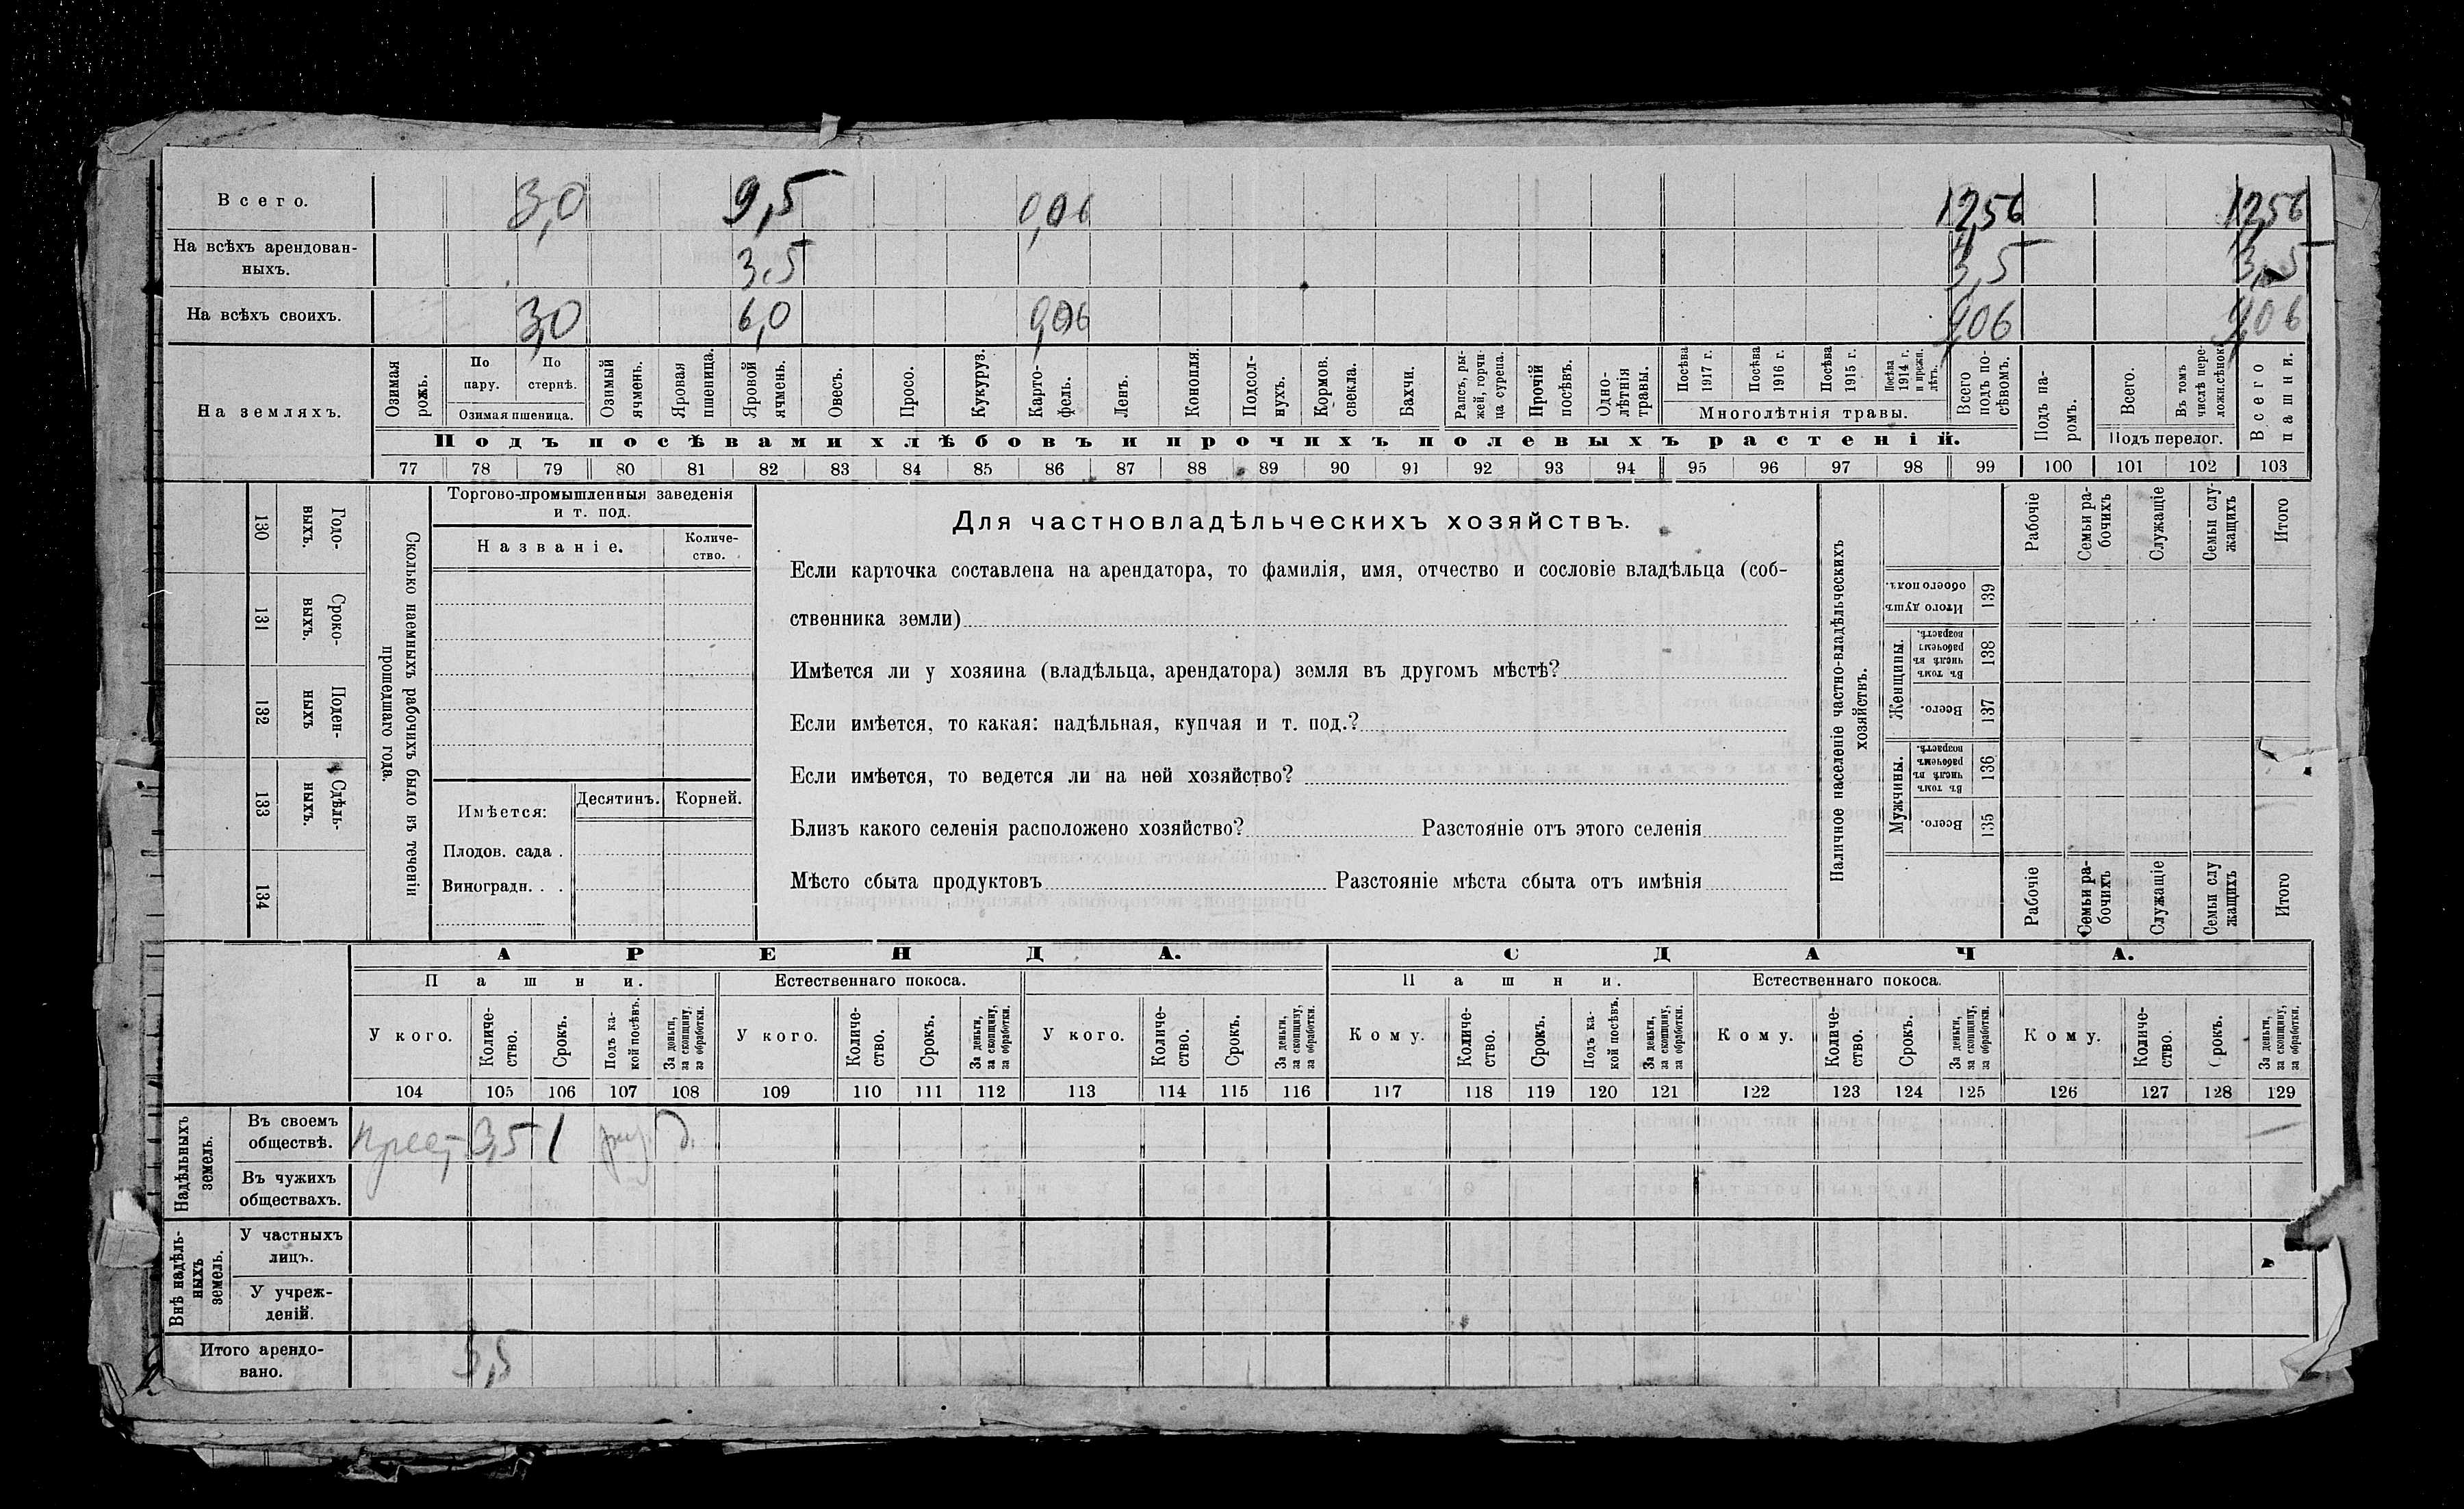 Всего. 3,0 9,5 0,06 12,56 12,56
На всѣхъ арендован-
ныхъ. 3,5 3,5 3,5
На всѣхъ своихъ. 3,0 6,0 0,06 9,06 9,06
На земляхъ.
Озимая рожь.
По пару.
По стернѣ.
Озимая пшеница.
Озимый ячмень.
Яровая пшеница.
Яровой ячмень.
Овесъ.
Просо.
Кукуруз.
Карто-
фель.
Ленъ.
Конопля.
Подсол-
нухъ.
Кормов.
свекла.
Бахчи.
Рапсъ, ры-
жей, горчи-
ца сурепа.
Прочій
посѣвъ.
Одно-
лѣтнія
травы.
Посѣва
1917 г.
Посѣва
1916 г.
Посѣва
1915 г.
Посѣва
1914 г.
и прежн.
лѣтъ.
Многолѣтнія травы.
Всего
подъ по-
сѣвомъ.
Подъ па-
ромъ.
Всего.
Въ томъ
числѣ пере-
ложн.сѣнок.
Подъ перелог.
Всего
пашни.
Подъ посѣвами хлѣбовъ и прочихъ полевыхъ растеній.
77 78 79 80 81 82 83 84 85 86 87 88 89 90 91 92 93 94 95 96 97 98 99 100 101 102 103
Годо-
выхъ.
130
Сроко-
выхъ.
131
Поден-
ныхъ
132
Сдѣль-
ныхъ.
133
134
Сколько наемныхъ рабочихъ было въ теченіи
прошедшаго года.
Торгово-промышленныя заведенія
и т. под.
Названіе.
Количе-
ство.
Имѣется:
Десятинъ.
Корней.
Плодов. сада .
Виноградн. . .
Для частновладѣльческихъ хозяйствъ.
Если карточка составлена на арендатора, то фамилія, имя, отчество и сословіе владѣльца (соб-
ственника земли)
Имѣется ли у хозяина (владѣльца, арендатора) земля въ другомъ мѣстѣ?
Если имѣется, то какая: надѣльная, купчая и т. под.?
Если имѣется, то ведется ли на ней хозяйство?
Близъ какого селенія расположено хозяйство? Разстояніе отъ этого селенія
Мѣсто сбыта продуктовъ Разстояніе мѣста сбыта отъ имѣнія
Наличное населеніе частно-владѣльческихъ
хозяйствъ.
Рабочіе
Семьи ра-
бочихъ
Служащіе
Семьи слу-
жащихъ
Итого
Итого душъ
обоего пола.
139
Женщины.
Въ томъ
числѣ въ
рабочемъ
возрастѣ.
138
Всего.
137
Мужчины.
Въ томъ
числѣ въ
рабочемъ
возрастѣ.
136
Всего.
135
Рабочіе
Семьи ра-
бочихъ
Служащіе
Семьи слу
жащихъ
Итого
АРЕНДА. СДАЧА.
Пашни. Естественнаго покоса. Пашни. Естественнаго покоса.
У кого.
Количе-
ство.
Срокъ.
Подъ ка-
кой посѣвъ.
За деньги,
за скопщину,
за обработки.
У кого.
Количе-
ство.
Срокъ.
За деньги,
за скопщину,
за обработки.
У кого.
Количе-
ство.
Срокъ.
За деньги,
за скопщину,
за обработки.
Кому.
Количе-
ство.
Срокъ.
Подъ ка-
кой посѣвъ.
За деньги,
за скопщину,
за обработки.
Кому.
Количе-
ство.
Срокъ.
За деньги,
за скопщину,
за обработки.
Кому.
Количе-
ство.
Срокъ.
За деньги,
за скопщину,
за обработки.
104 105 106 107 108 109 110 111 112 113 114 115 116 117 118 119 120 121 122 123 124 125 126 127 128 129
Надѣльныхъ
земель.
Въ своемъ
обществѣ. 3,5 1 д.
Въ чужихъ
обществахъ.
Внѣ надѣль-
ныхъ
земель.
У частныхъ
лицъ.
У учреж-
деній.
Итого арендо-
вано. 3,5